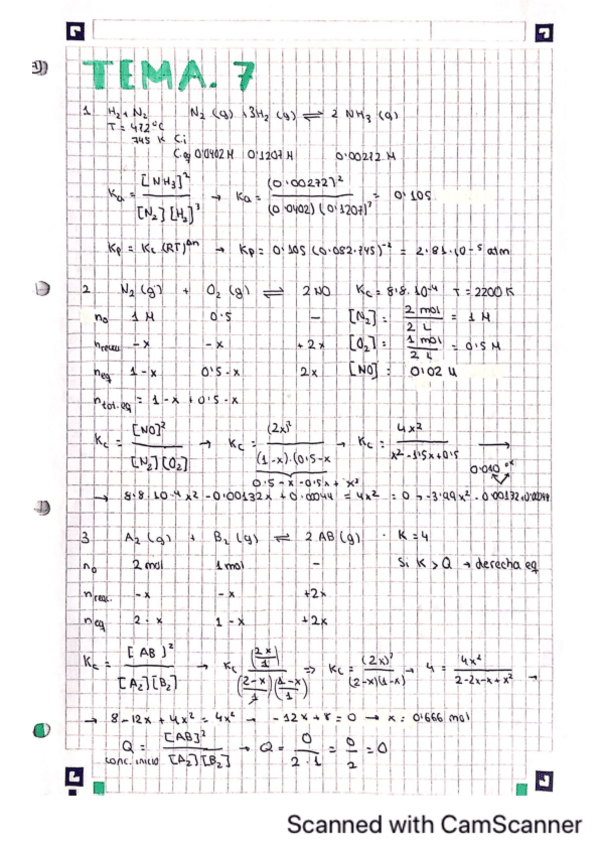 TEMA. 7
1 H₂ + N₂ N₂ (g) + 3H₂ (g) ⇌ 2 NH₃ (g)
T = 472ºC
745 K Ci
Ceq 0'0402 M 0'1207 M 0'00272 M
Ka = [NH₃]² / [N₂][H₂]³ → Ka = (0'00272)² / (0'0402)(0'1207)³ = 0'105
Kp = Kc (RT)^Δn → Kp = 0'105 (0'082·745)⁻² = 2'81·10⁻⁵ atm
2 N₂(g) + O₂ (g) ⇌ 2 NO Kc = 8'8·10⁻⁴ T = 2200 K
n₀ 1 M 0'5 — [N₂] = 2 mol / 2 L = 1 M
-x -x +2x [O₂] = 1 mol / 2 L = 0'5 M
neq 1-x 0'5-x 2x [NO] = 0'02 M
ntot.eq = 1-x + 0'5-x
Kc = [NO]² / [N₂][O₂] → Kc = (2x)² / (1-x)·(0'5-x → Kc = 4x² / x²-1'5x+0'5 →
0'5 - x - 0'5x + x²
→ 8'8·10⁻⁴ x² - 0'00132x + 0'00044 = 4x² = 0
3 A₂ (g) + B₂ (g) ⇌ 2 AB (g) · K = 4
n₀ 2 mol 1 mol — Si K > Q → derecha eq
nreac. -x -x +2x
neq 2-x 1-x +2x
Kc = [AB]² / [A₂][B₂] → Kc (2x/1)² / (2-x/1)(1-x/1) ⇒ Kc = (2x)² / (2-x)(1-x) → 4 = 4x² / 2-2x-x+x² →
→ 8-12x + 4x² = 4x² → -12x + 8 = 0 → x = 0'666 mol
Q = [AB]² / [A₂][B₂] → Q = 0 / 2·1 = 0/2 = 0
conc. inicio
Scanned with CamScanner